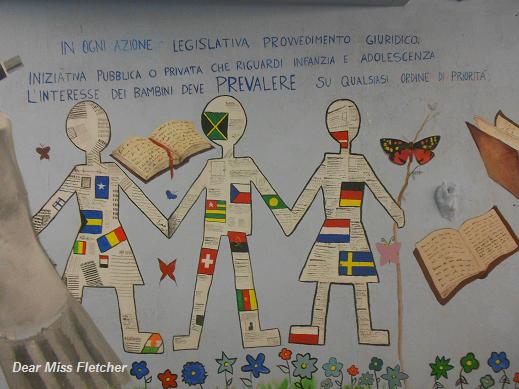 IN OGNI AZIONE LEGISLATIVA, PROVVEDIMENTO GIURIDICO,
INIZIATIVA PUBBLICA O PRIVATA CHE RIGUARDI INFANZIA E ADOLESCENZA
L'INTERESSE DEI BAMBINI DEVE PREVALERE SU QUALSIASI ORDINE DI PRIORITA'
Dear Miss Fletcher